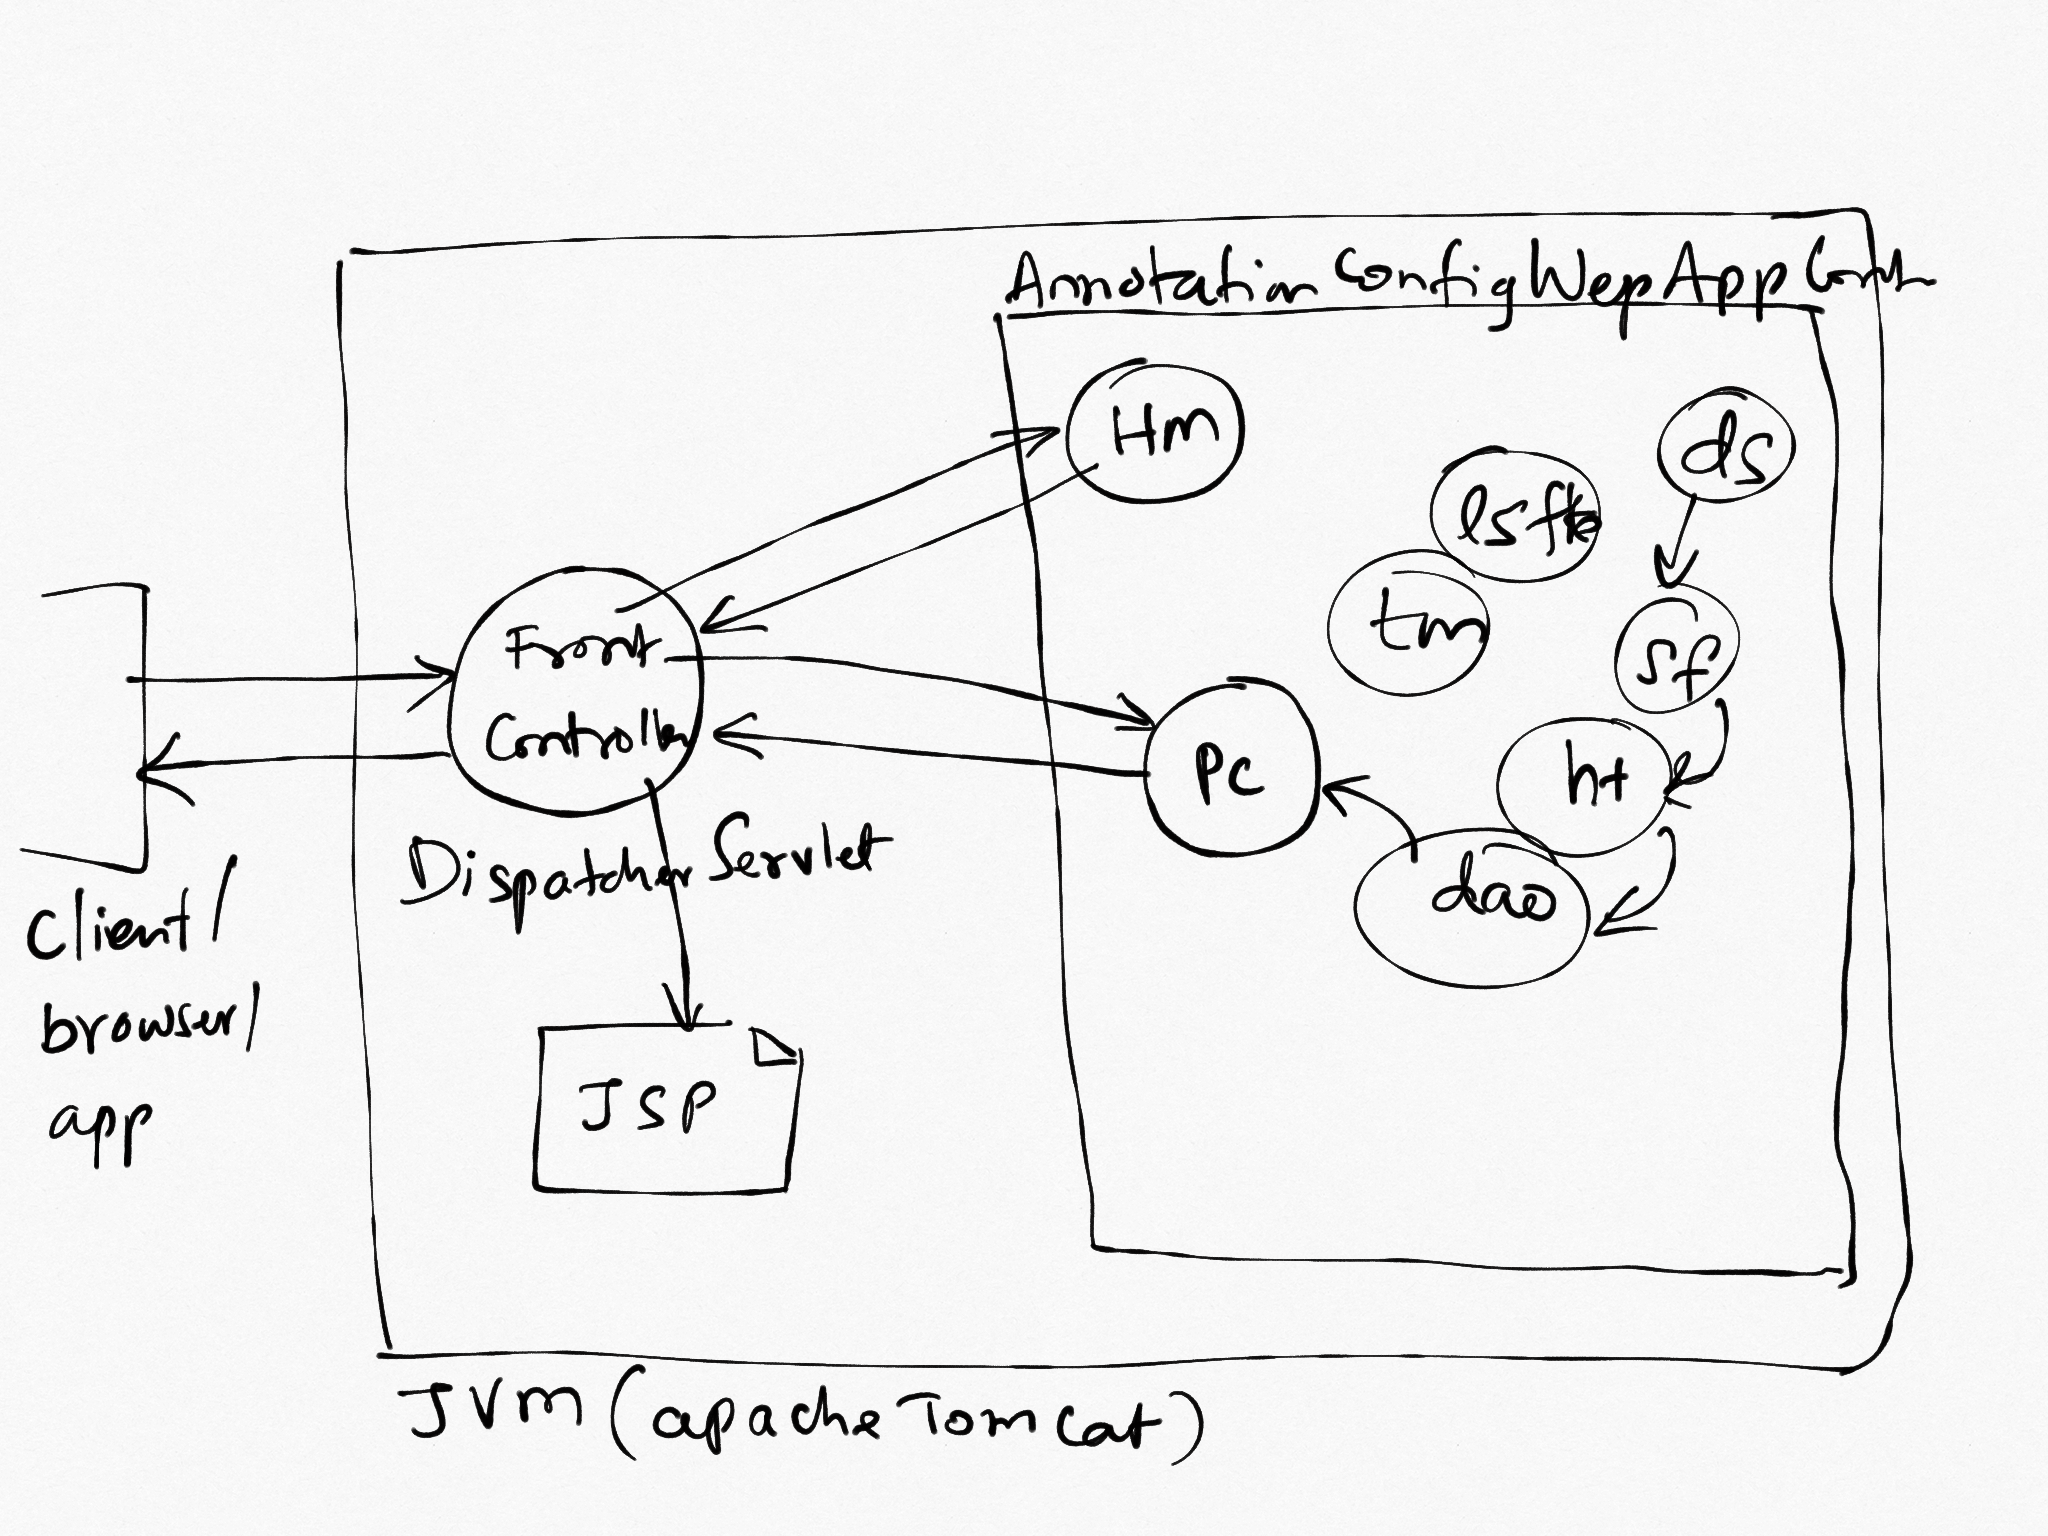 Annotation Config Wep App
Hm
ds
tm
sf
Front
Controller
PC
ht
dao
Dispatcher Servlet
Client/
browser/
app
JSP
JVM (apache Tomcat)